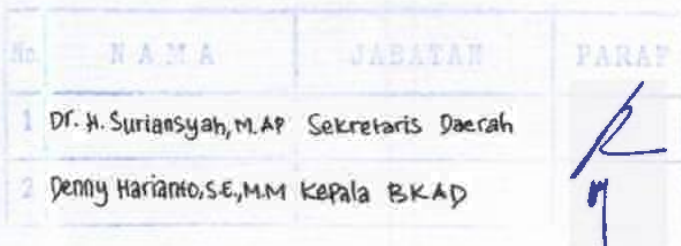 No. NAMA JABATAN PARAF
1 Dr. H. Suriansyah, M.AP Sekretaris Daerah
2 Denny Harianto, S.E., M.M Kepala BKAD